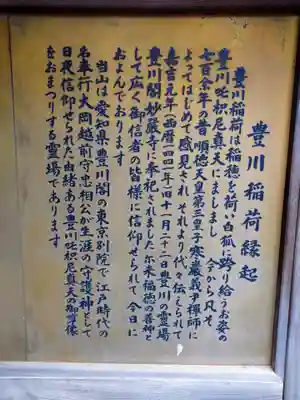 豊川稲荷縁起
豊川稲荷は稲穂を荷い白狐に跨り給うお姿の
豊川吒枳尼真天にましまし、今から凡そ
七百余年の昔順徳天皇第三皇子寒巖義尹禅師に
よってはじめて感見され、それより代々伝えられて
嘉吉元年(西暦一四四一年)十一月二十二日豊川の霊場
豊川閣妙厳寺に奉祀されました 尓来福徳の善神と
して広く御信者の皆様に信仰せられて、今日に
およんでおります
当山は愛知県豊川閣の東京別院で江戸時代の
名奉行大岡越前守忠相公が生涯の守護神として
日夜信仰せられた由緒ある豊川吒枳尼真天の御尊像
をおまつりする霊場であります